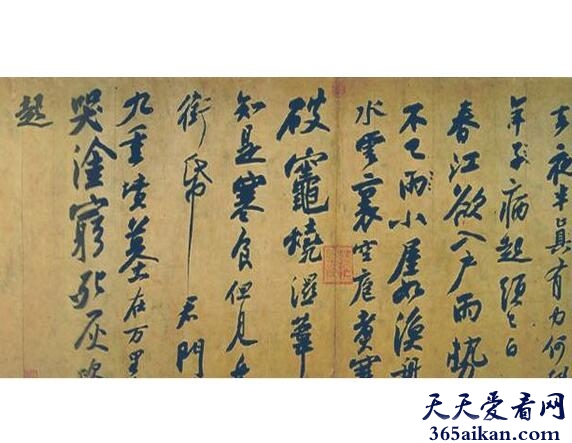 去夜半真有力何
年子病起須已白
春江欲入戶雨勢
不已雨小屋如漁舟
水雲裏空庖煮寒
破竈燒濕葦
知是寒食但見烏
銜帋君門
九重墳墓在万里
哭塗窮死灰吹
起
天天爱看网
365aikan.com